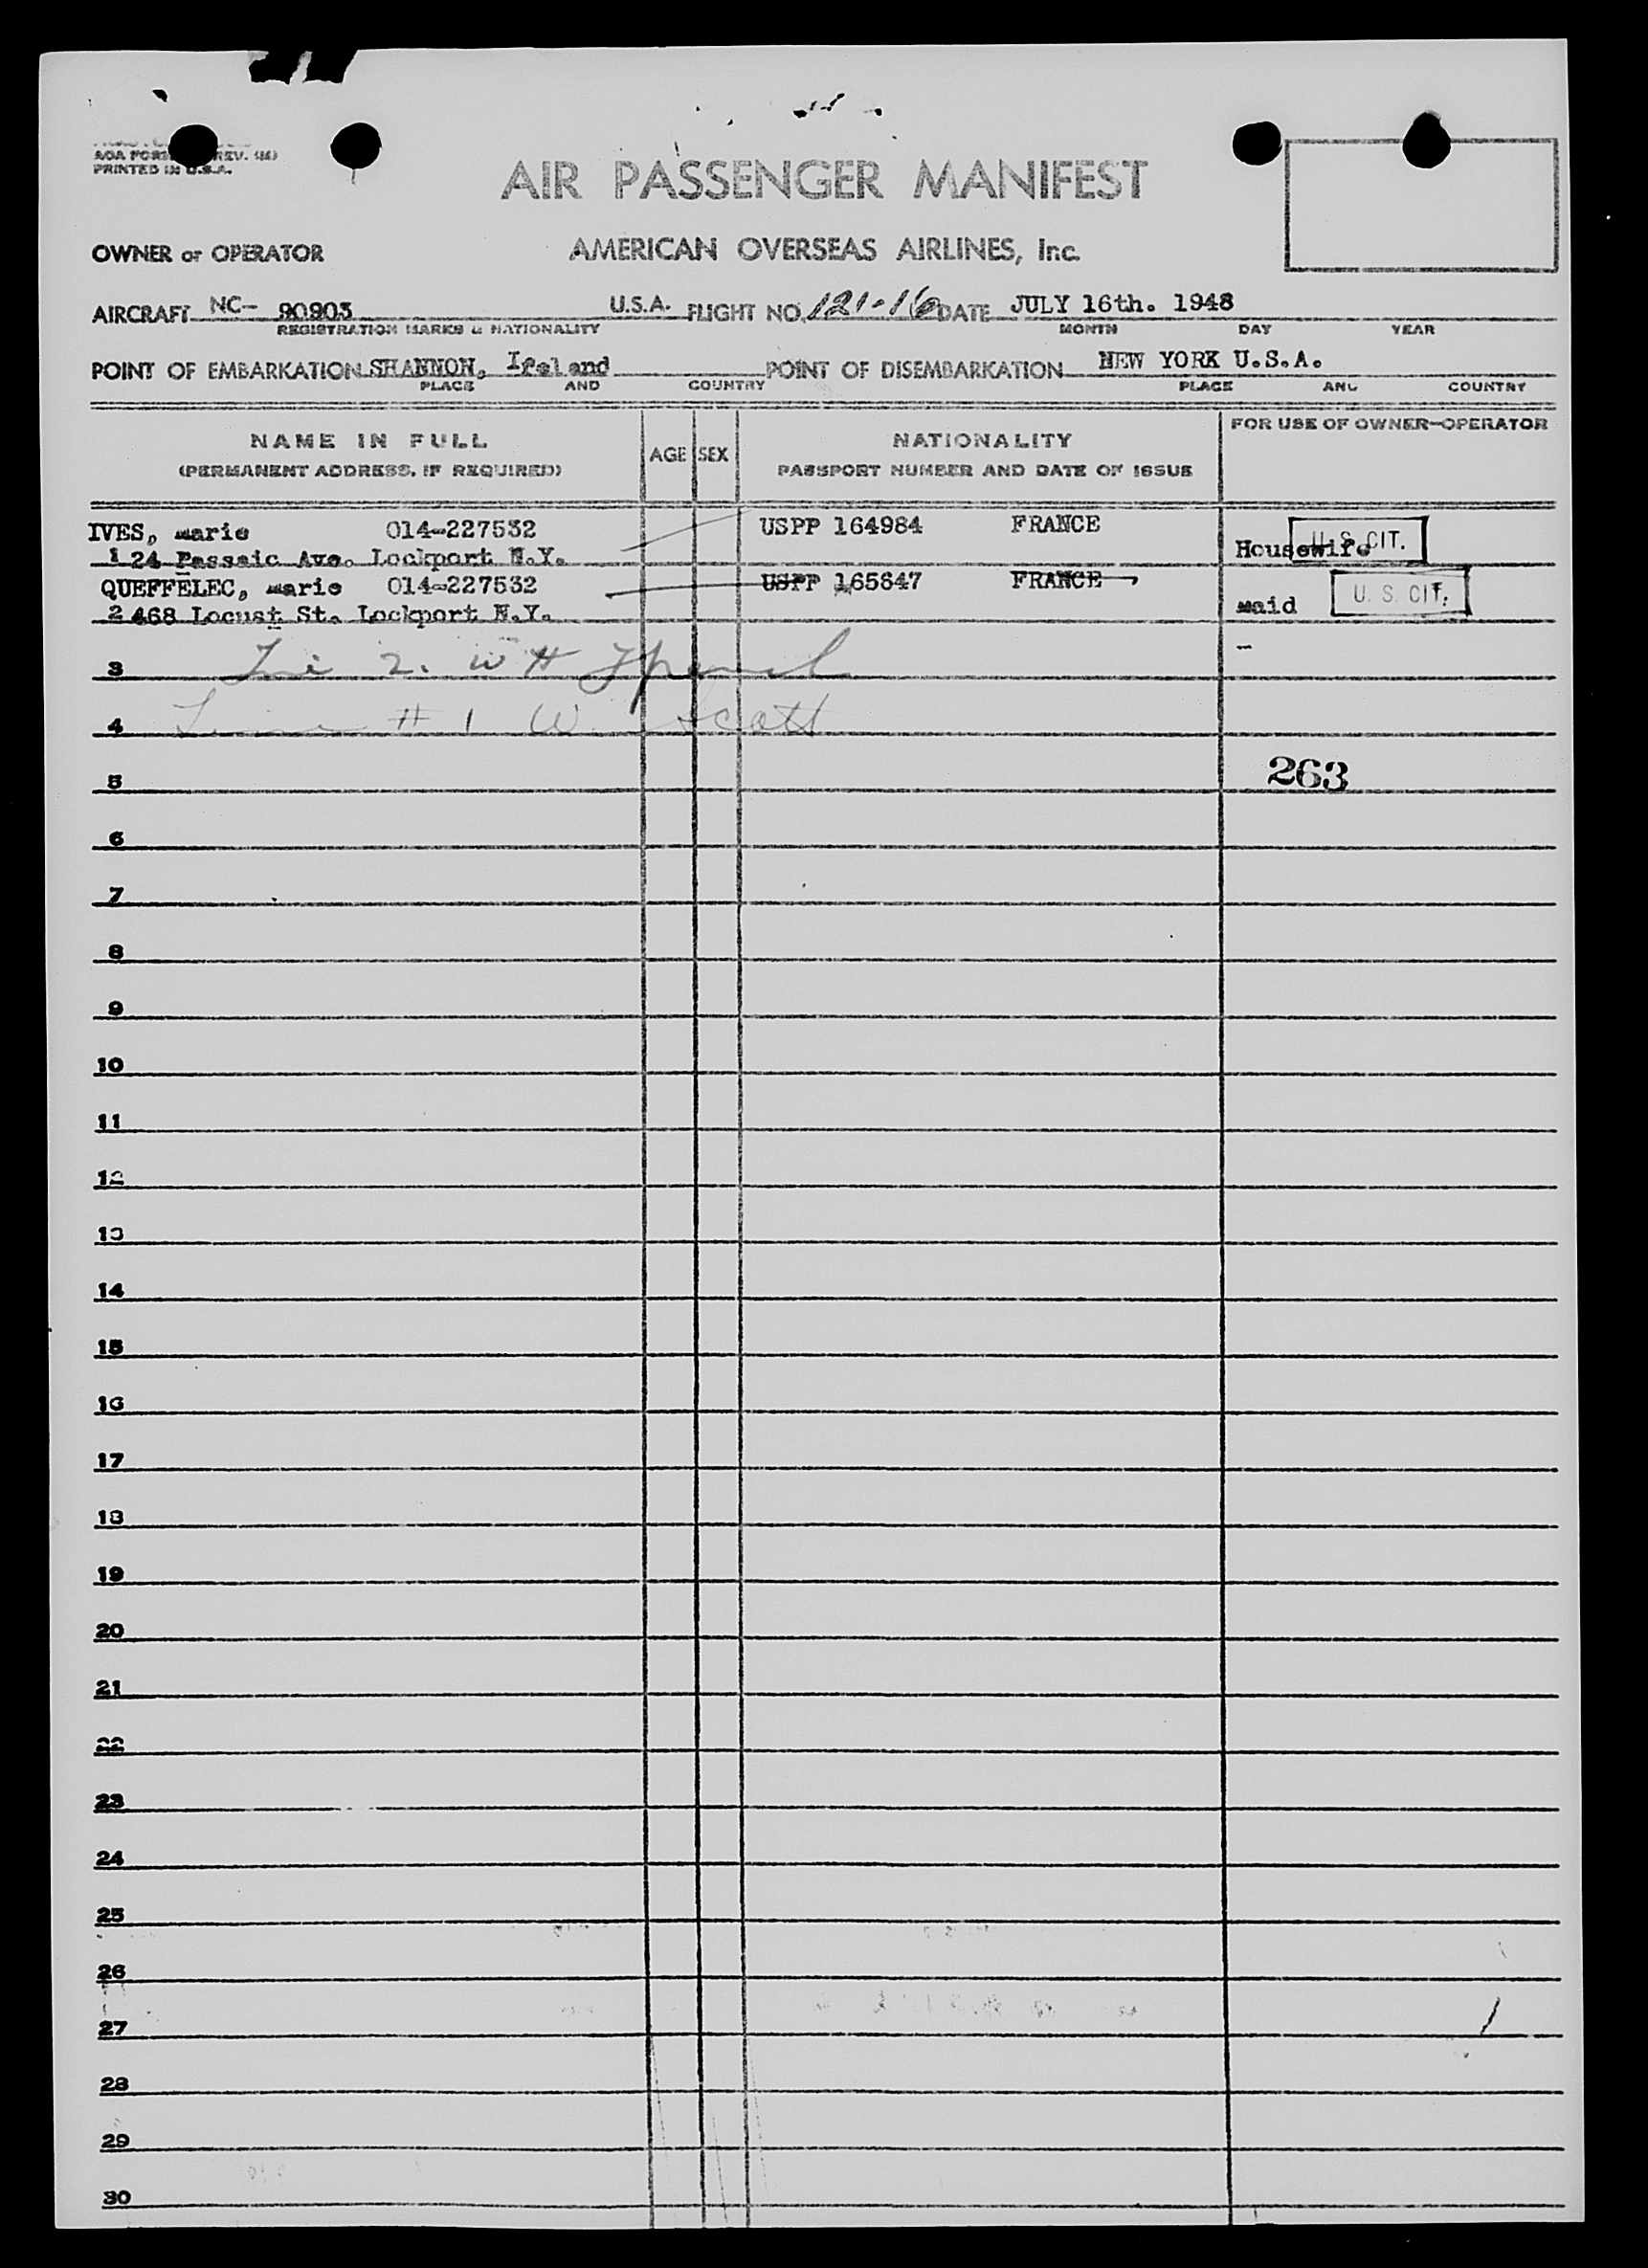 PRINTED IN U.S.A.
AIR PASSENGER MANIFEST
OWNER or OPERATOR AMERICAN OVERSEAS AIRLINES, Inc.
AIRCRAFT NC- 90903 U.S.A. FLIGHT NO. 121-16 DATE JULY 16th. 1948
REGISTRATION MARKS & NATIONALITY MONTH DAY YEAR
POINT OF EMBARKATION SHANNON, Ireland POINT OF DISEMBARKATION NEW YORK U.S.A.
PLACE AND COUNTRY PLACE AND COUNTRY
NAME IN FULL AGE SEX NATIONALITY FOR USE OF OWNER-OPERATOR
(PERMANENT ADDRESS, IF REQUIRED) PASSPORT NUMBER AND DATE OF ISSUE
IVES, marie 014-227532 USPP 164984 FRANCE U.S. CIT.
1 24 Passaic Ave. Lockport N.Y. Housewife
QUEFFELEC, marie 014-227532 USPP 165847 FRANCE U. S. CIT.
2 468 Locust St. Lockport N.Y. maid
3 2. W H
4 Line # 1 W. Scott
5 263
6
7
8
9
10
11
12
13
14
15
16
17
18
19
20
21
22
23
24
25
26
27
28
29
30